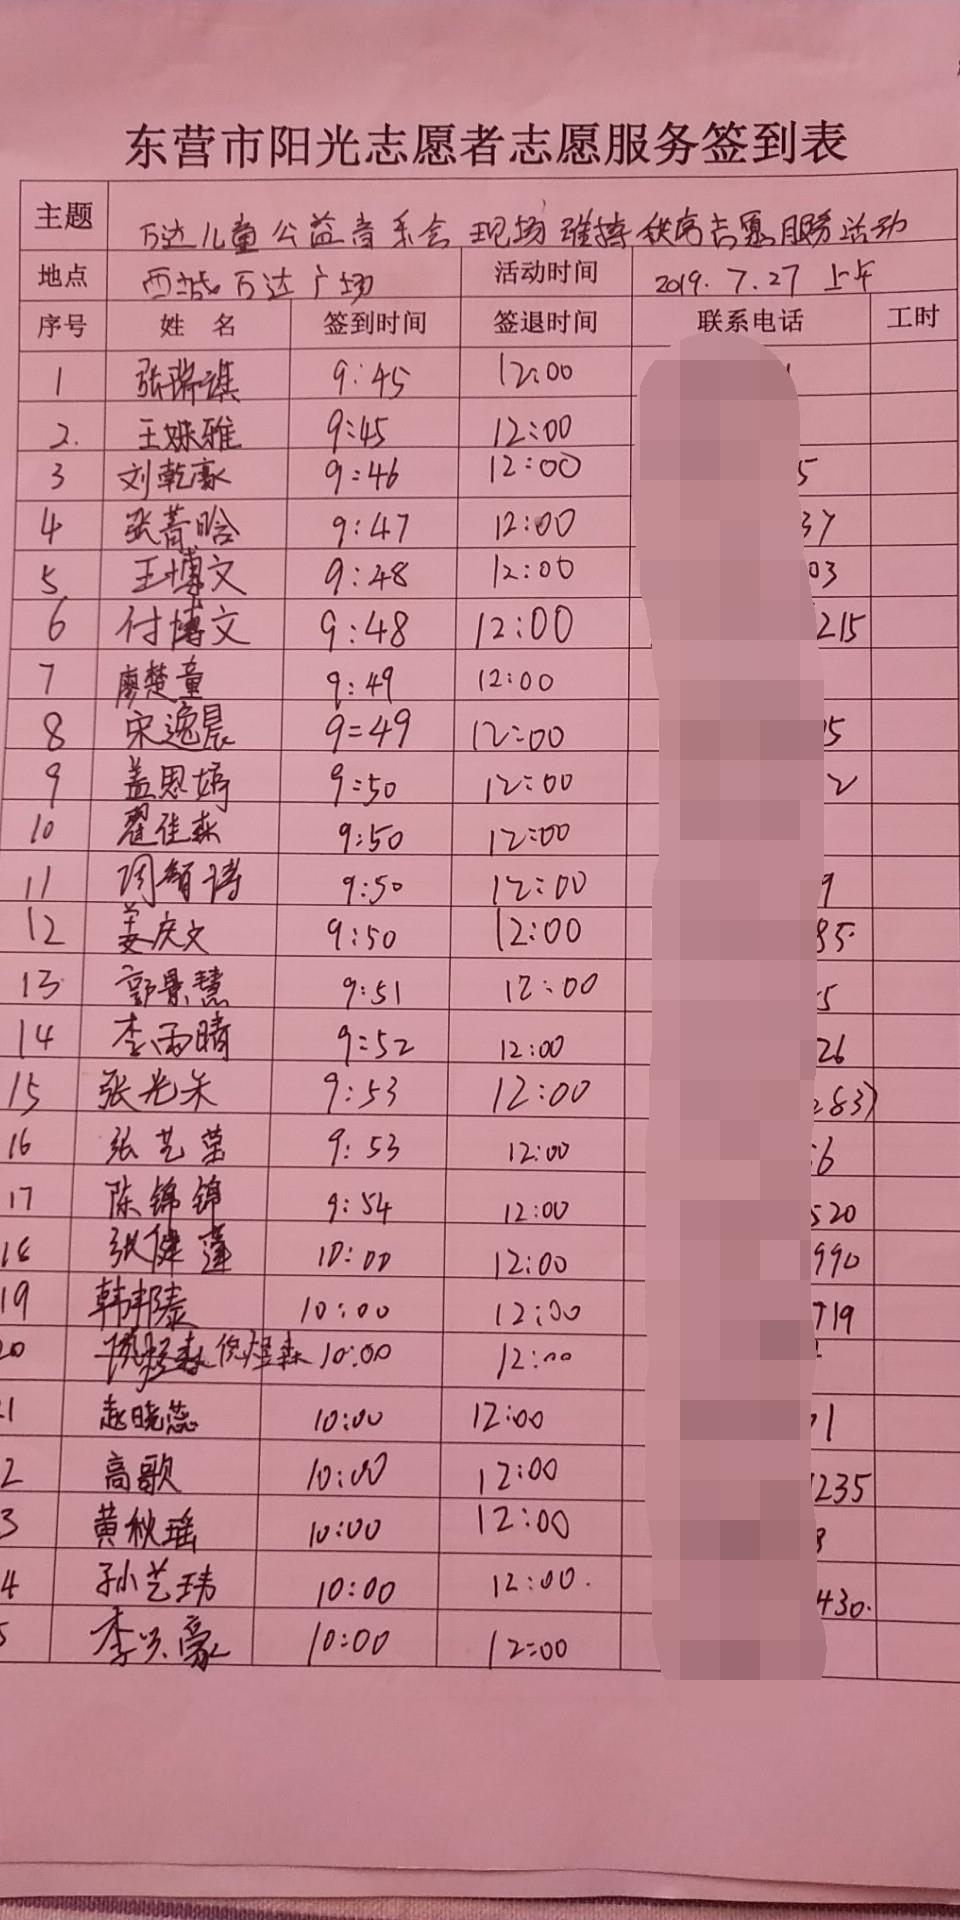 东营市阳光志愿者志愿服务签到表
主题 万达儿童公益音乐会现场维持秩序志愿服务活动
地点 西城万达广场 活动时间 2019.7.27 上午
序号 姓名 签到时间 签退时间 联系电话 工时
1 张瑞祺 9:45 12:00
2. 王姝雅 9:45 12:00
3 刘乾豪 9:46 12:00 5
4 张菁晗 9:47 12:00 37
5 王博文 9:48 12:00 03
6 付博文 9:48 12:00 215
7 廖楚童 9:49 12:00
8 宋逸晨 9:49 12:00 5
9 盖思婷 9:50 12:00 2
10 翟佳森 9:50 12:00
11 周 9:50 12:00 9
12 姜庆文 9:50 12:00 85
13 郭景慧 9:51 12:00 5
14 李雨晴 9:52 12:00 26
15 张光 9:53 12:00 283
16 张艺莹 9:53 12:00 6
17 陈锦锦 9:54 12:00 520
18 张健蓬 10:00 12:00 990
19 韩邦泰 10:00 12:00 719
20 倪煜森 10:00 12:00
1 赵晓蕊 10:00 12:00 1
2 高歌 10:00 12:00 235
3 黄秋瑶 10:00 12:00
4 孙艺玮 10:00 12:00. 430.
李兴豪 10:00 12:00